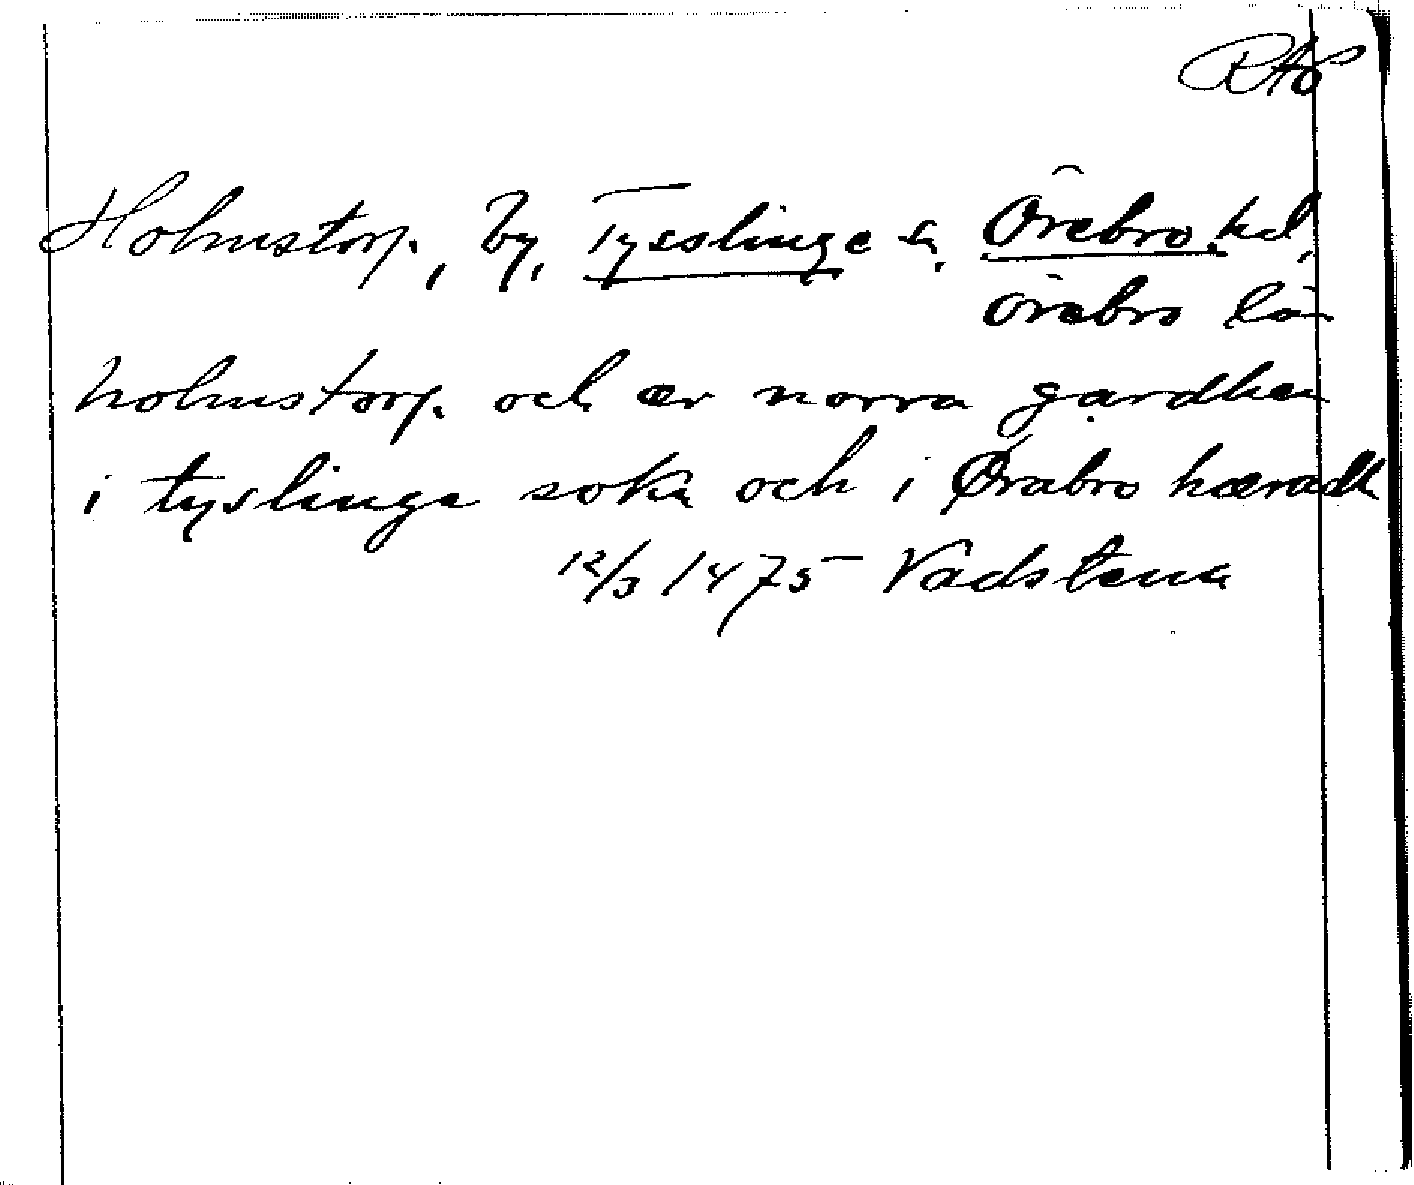 RAp
Holmstorp, by, Tysslinge s, Örebro hd,
Örebro län
holmstorp och ær norra gardhen
i tyslinge sokn och i Ørabro hæradh
12/3 1475 Vadstena